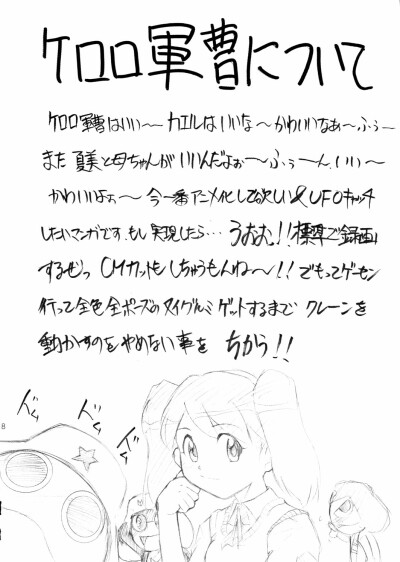 ケロロ軍曹について
ケロロ軍曹はいい〜カエルはいいな〜かわいいなぁ〜ふぅ〜
また夏美と母ちゃんがいいんだよぉ〜ふぅ〜ん、いい〜
かわいいよぉ〜今一番アニメ化して欲しい&UFOキャッチ
したいマンガです。もし実現したら…うおお!!標準で録画
するぜっCMカットもしちゃうもんね〜!!でもってゲーセン
行って全色全ポーズのヌイグルミゲットするまでクレーンを
動かすのをやめない事をちかう!!
ドム
ドム
ドム
8